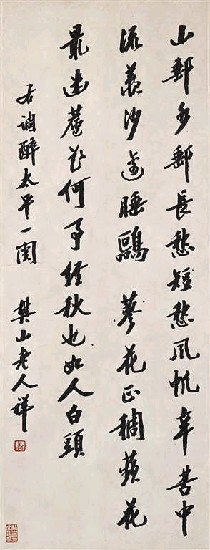 山郵水郵長愁短愁風帆辛苦中
流羨沙邊睡鷗 蓼花正稠蘋花
最幽蘆花何事經秋也如人白頭
右調醉太平一闋 樊山老人祥